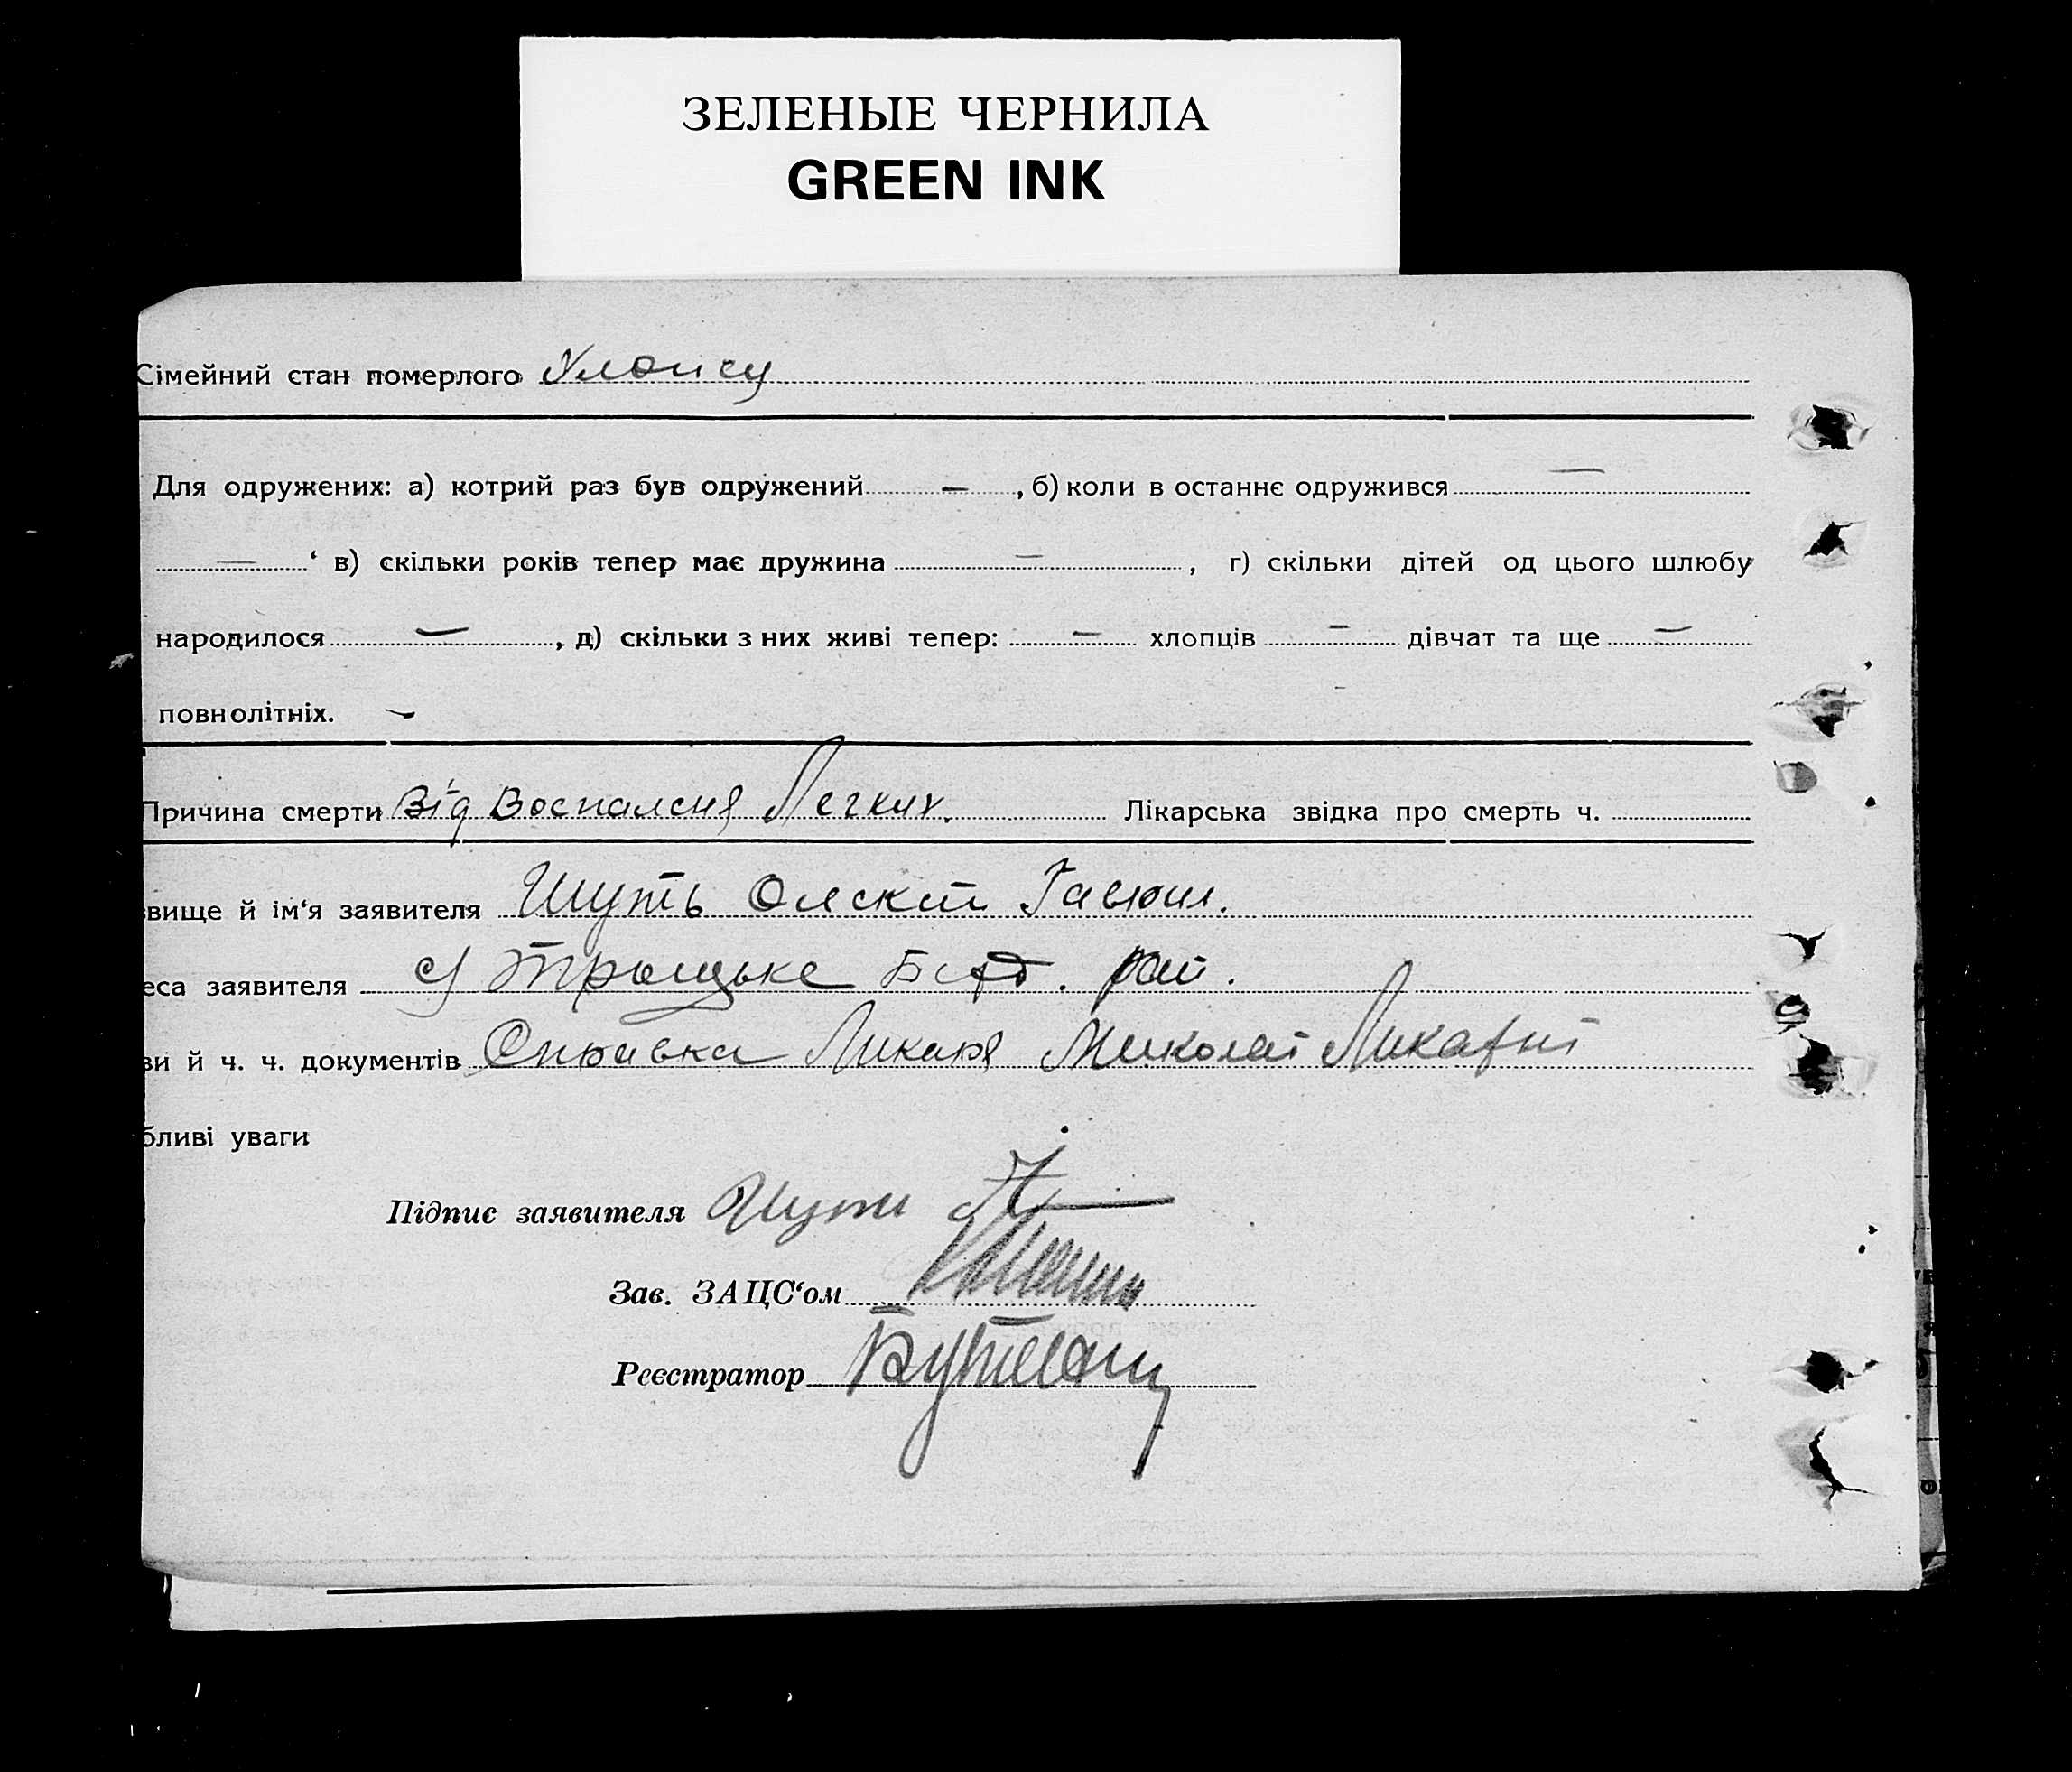 ЗЕЛЕНЫЕ ЧЕРНИЛА
GREEN INK
Сімейний стан померлого
Для одружених: а) котрий раз був одружений — , б) коли в останнє одружився —
— ‘ в) скільки років тепер має дружина — , г) скільки дітей од цього шлюбу
народилося — , д) скільки з них живі тепер: — хлопців — дівчат та ще —
повнолітніх. —
Причина смерти Від Воспаленя Легких. Лікарська звідка про смерть ч.
звище й ім‘я заявителя Шуть Олексій
еса заявителя с/ Троицьке рай.
ви й ч. ч. документів Справка Ликаря Миколаї
бливі уваги
Підпис заявителя Шуть
Зав. ЗАЦС‘ом
Реєстратор